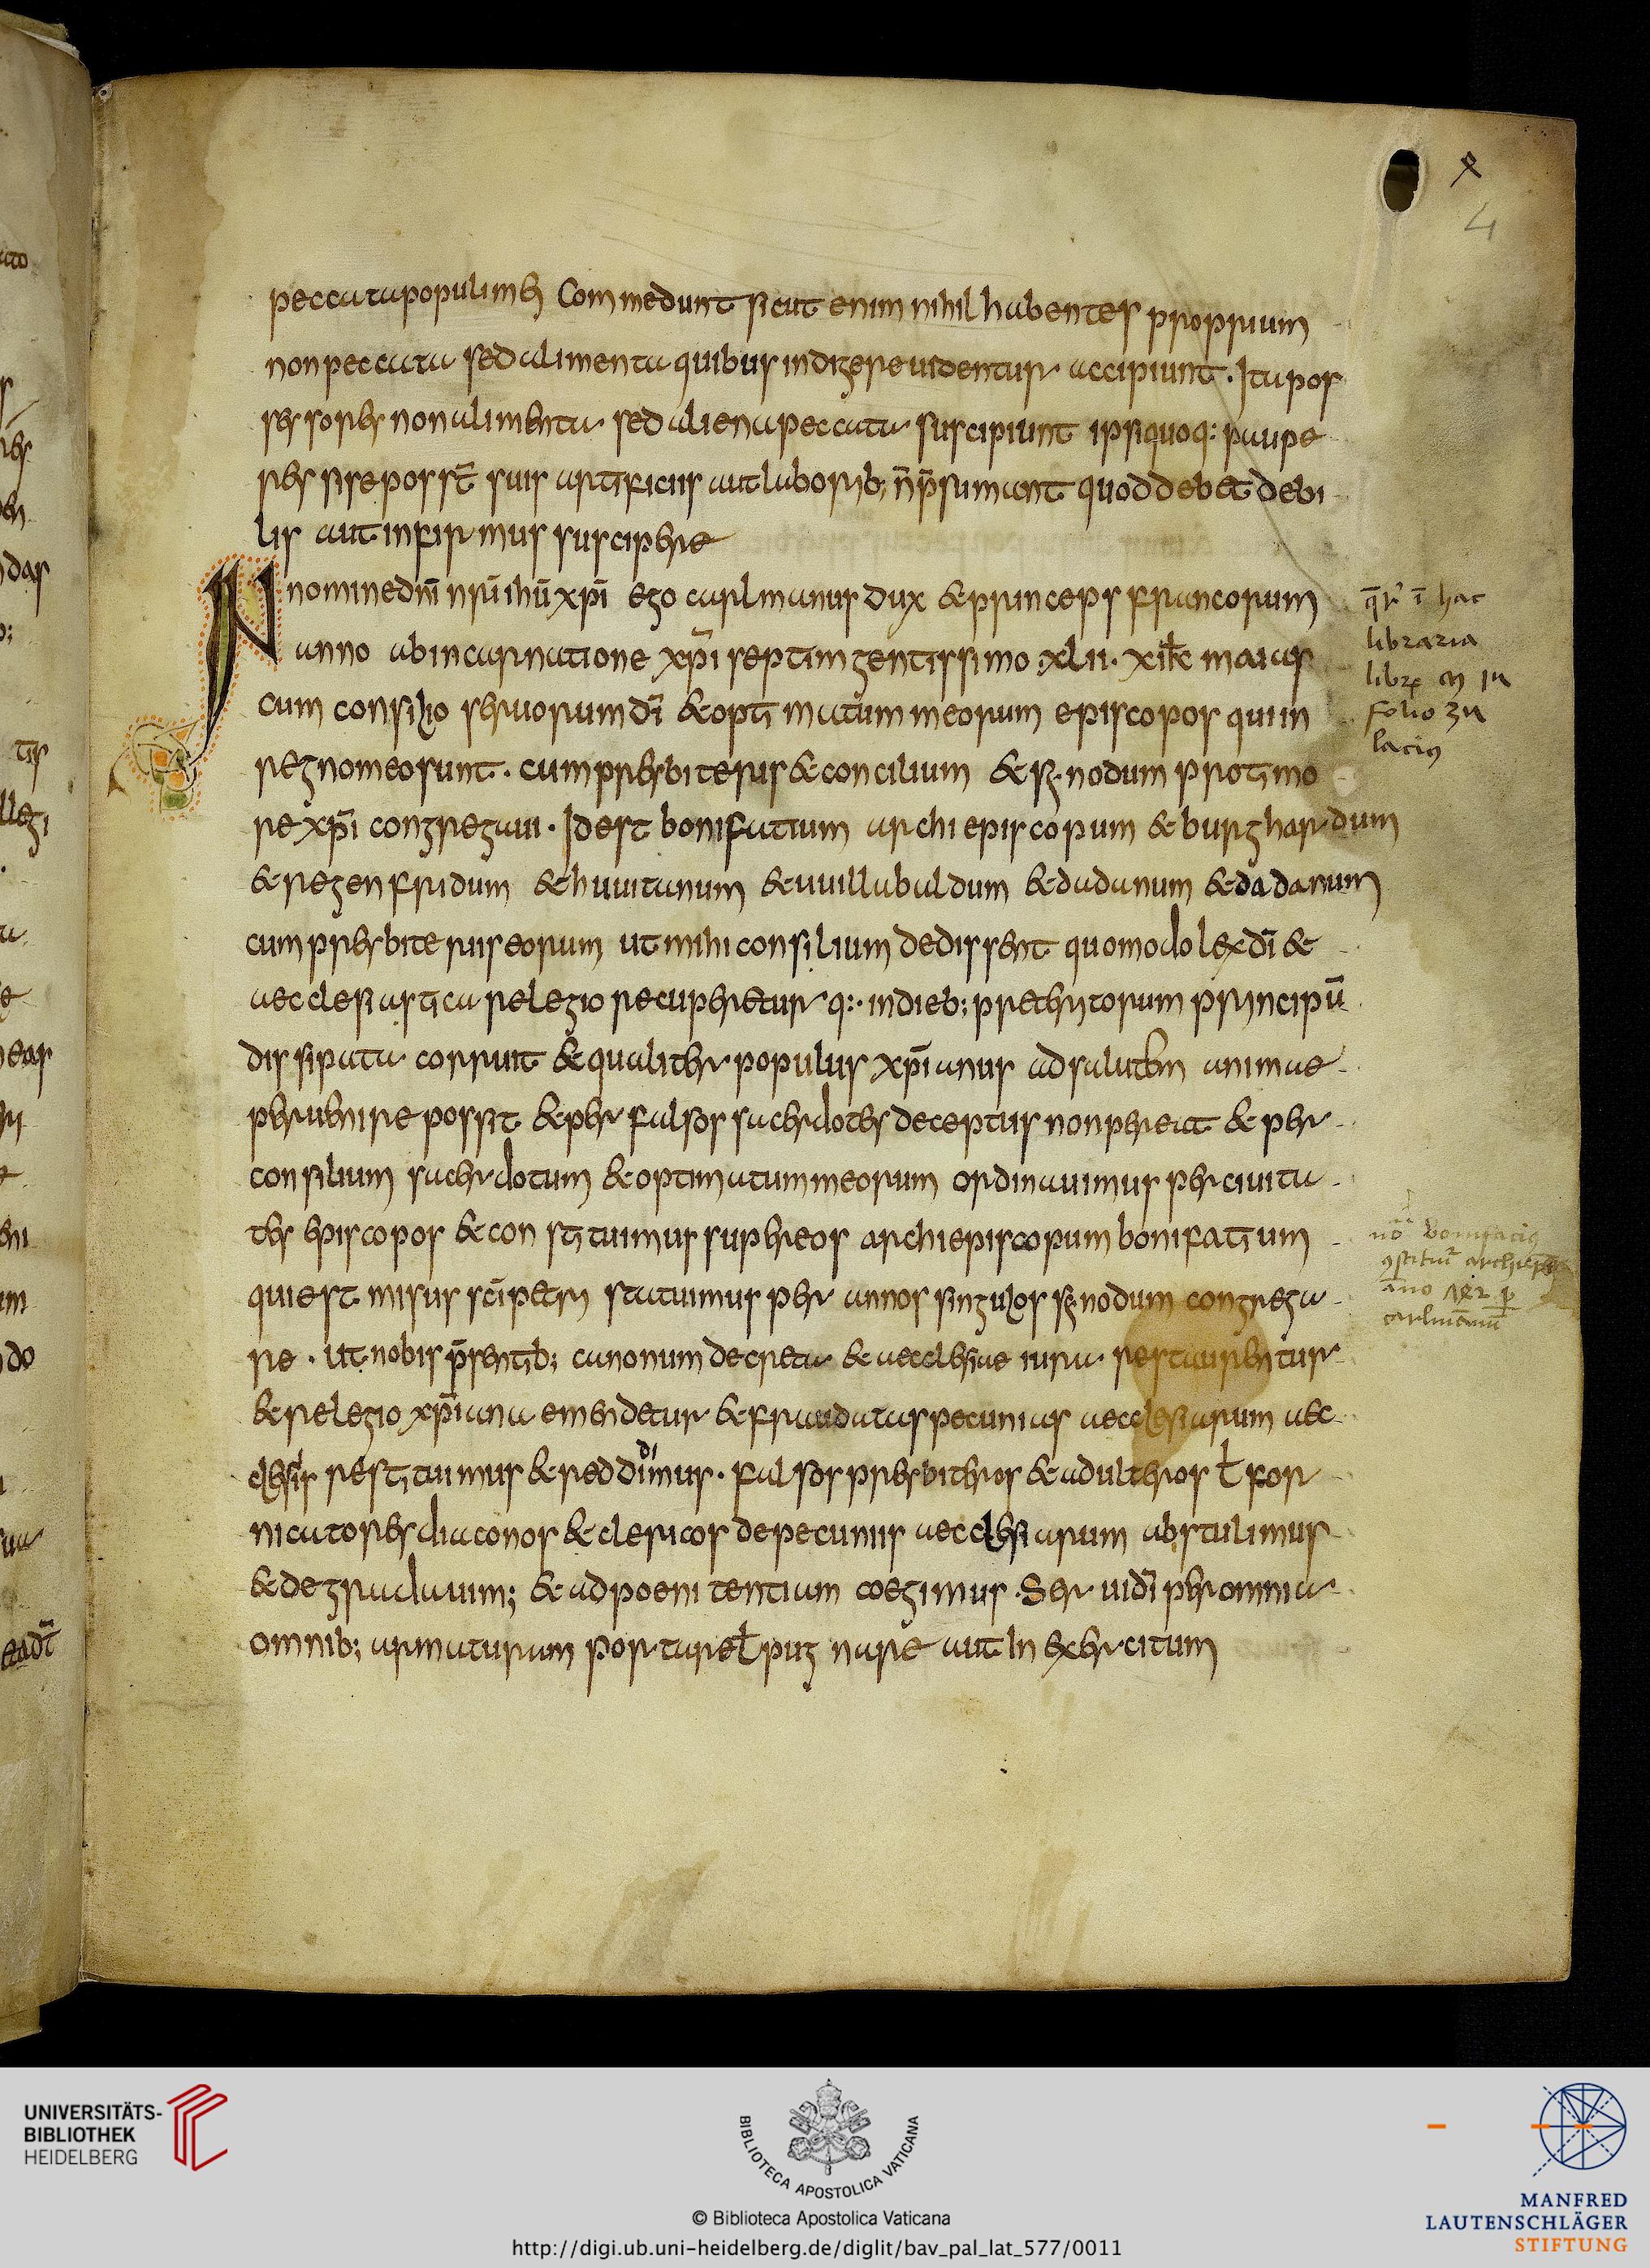 peccata populi inh Commedunt sicut enim nihil habentes proprium
non peccata sed alimenta quibus indigere uidentur accipiunt. Ita pos
sessores non alimenta sed aliena peccata suscipiunt ipsi quoq: paupe
res si se poss̄t suis artificiis aut laborib; n̄ p̄sumant quod debet debi
lis aut infirmus suscipere
IN nomine dn̄i nr̄i ihū xp̄i ego carlmanus dux & princeps francorum
anno ab incarnatione xp̄i septimgentissimo xlii. xi kł maias
cum consilio seruorum dī & optimatum meorum episcopos qui in
regno meo sunt. cum presbiteris & concilium & synodum pro timo
re xp̄i congregaui. Id est bonifatium archiepiscopum & burghardum
& regenfridum & huuitanum & uuillabaldum & dadanum & dadanum
cum presbiteris eorum ut mihi consilium dedissent quomodo lex dī &
aecclesiastica relegio recuperetur q:. in dieb; preteritorum principū
dissipata corruit & qualiter populus xp̄ianus ad salutem animae
peruenire possit & per falsos sacerdotes deceptus non pereat & per
consilium sacerdotum & optimatum meorum ordinauimus per ciuita
tes episcopos & constituimus super eos archiepiscopum bonifatium
qui est misus sc̄i petri statuimus per annos singulos synodum congrega
re. ut nobis p̄sentib; canonum decreta & aecclesiae iura restaurentur
& relegio xp̄iana emendetur & fraudatas pecunias aecclesiarum aec
clesiis restituimus & reddidimus. falsos presbiteros & adulteros ł for
nicatores diaconos & clericos de pecuniis aecclesiarum abstulimus
& degradauim; & ad poenitentiam coegimus. Serui dī per omnia
omnib; armaturam portare ł pugnare aut In exercitum
4
q̄r ī hac
libraria
folio
nō bonifacius
archiep̄s
anno p
carlmanū
UNIVERSITÄTS-
BIBLIOTHEK
HEIDELBERG
BIBLIOTECA APOSTOLICA VATICANA
© Biblioteca Apostolica Vaticana
http://digi.ub.uni-heidelberg.de/diglit/bav_pal_lat_577/0011
MANFRED
LAUTENSCHLÄGER
STIFTUNG